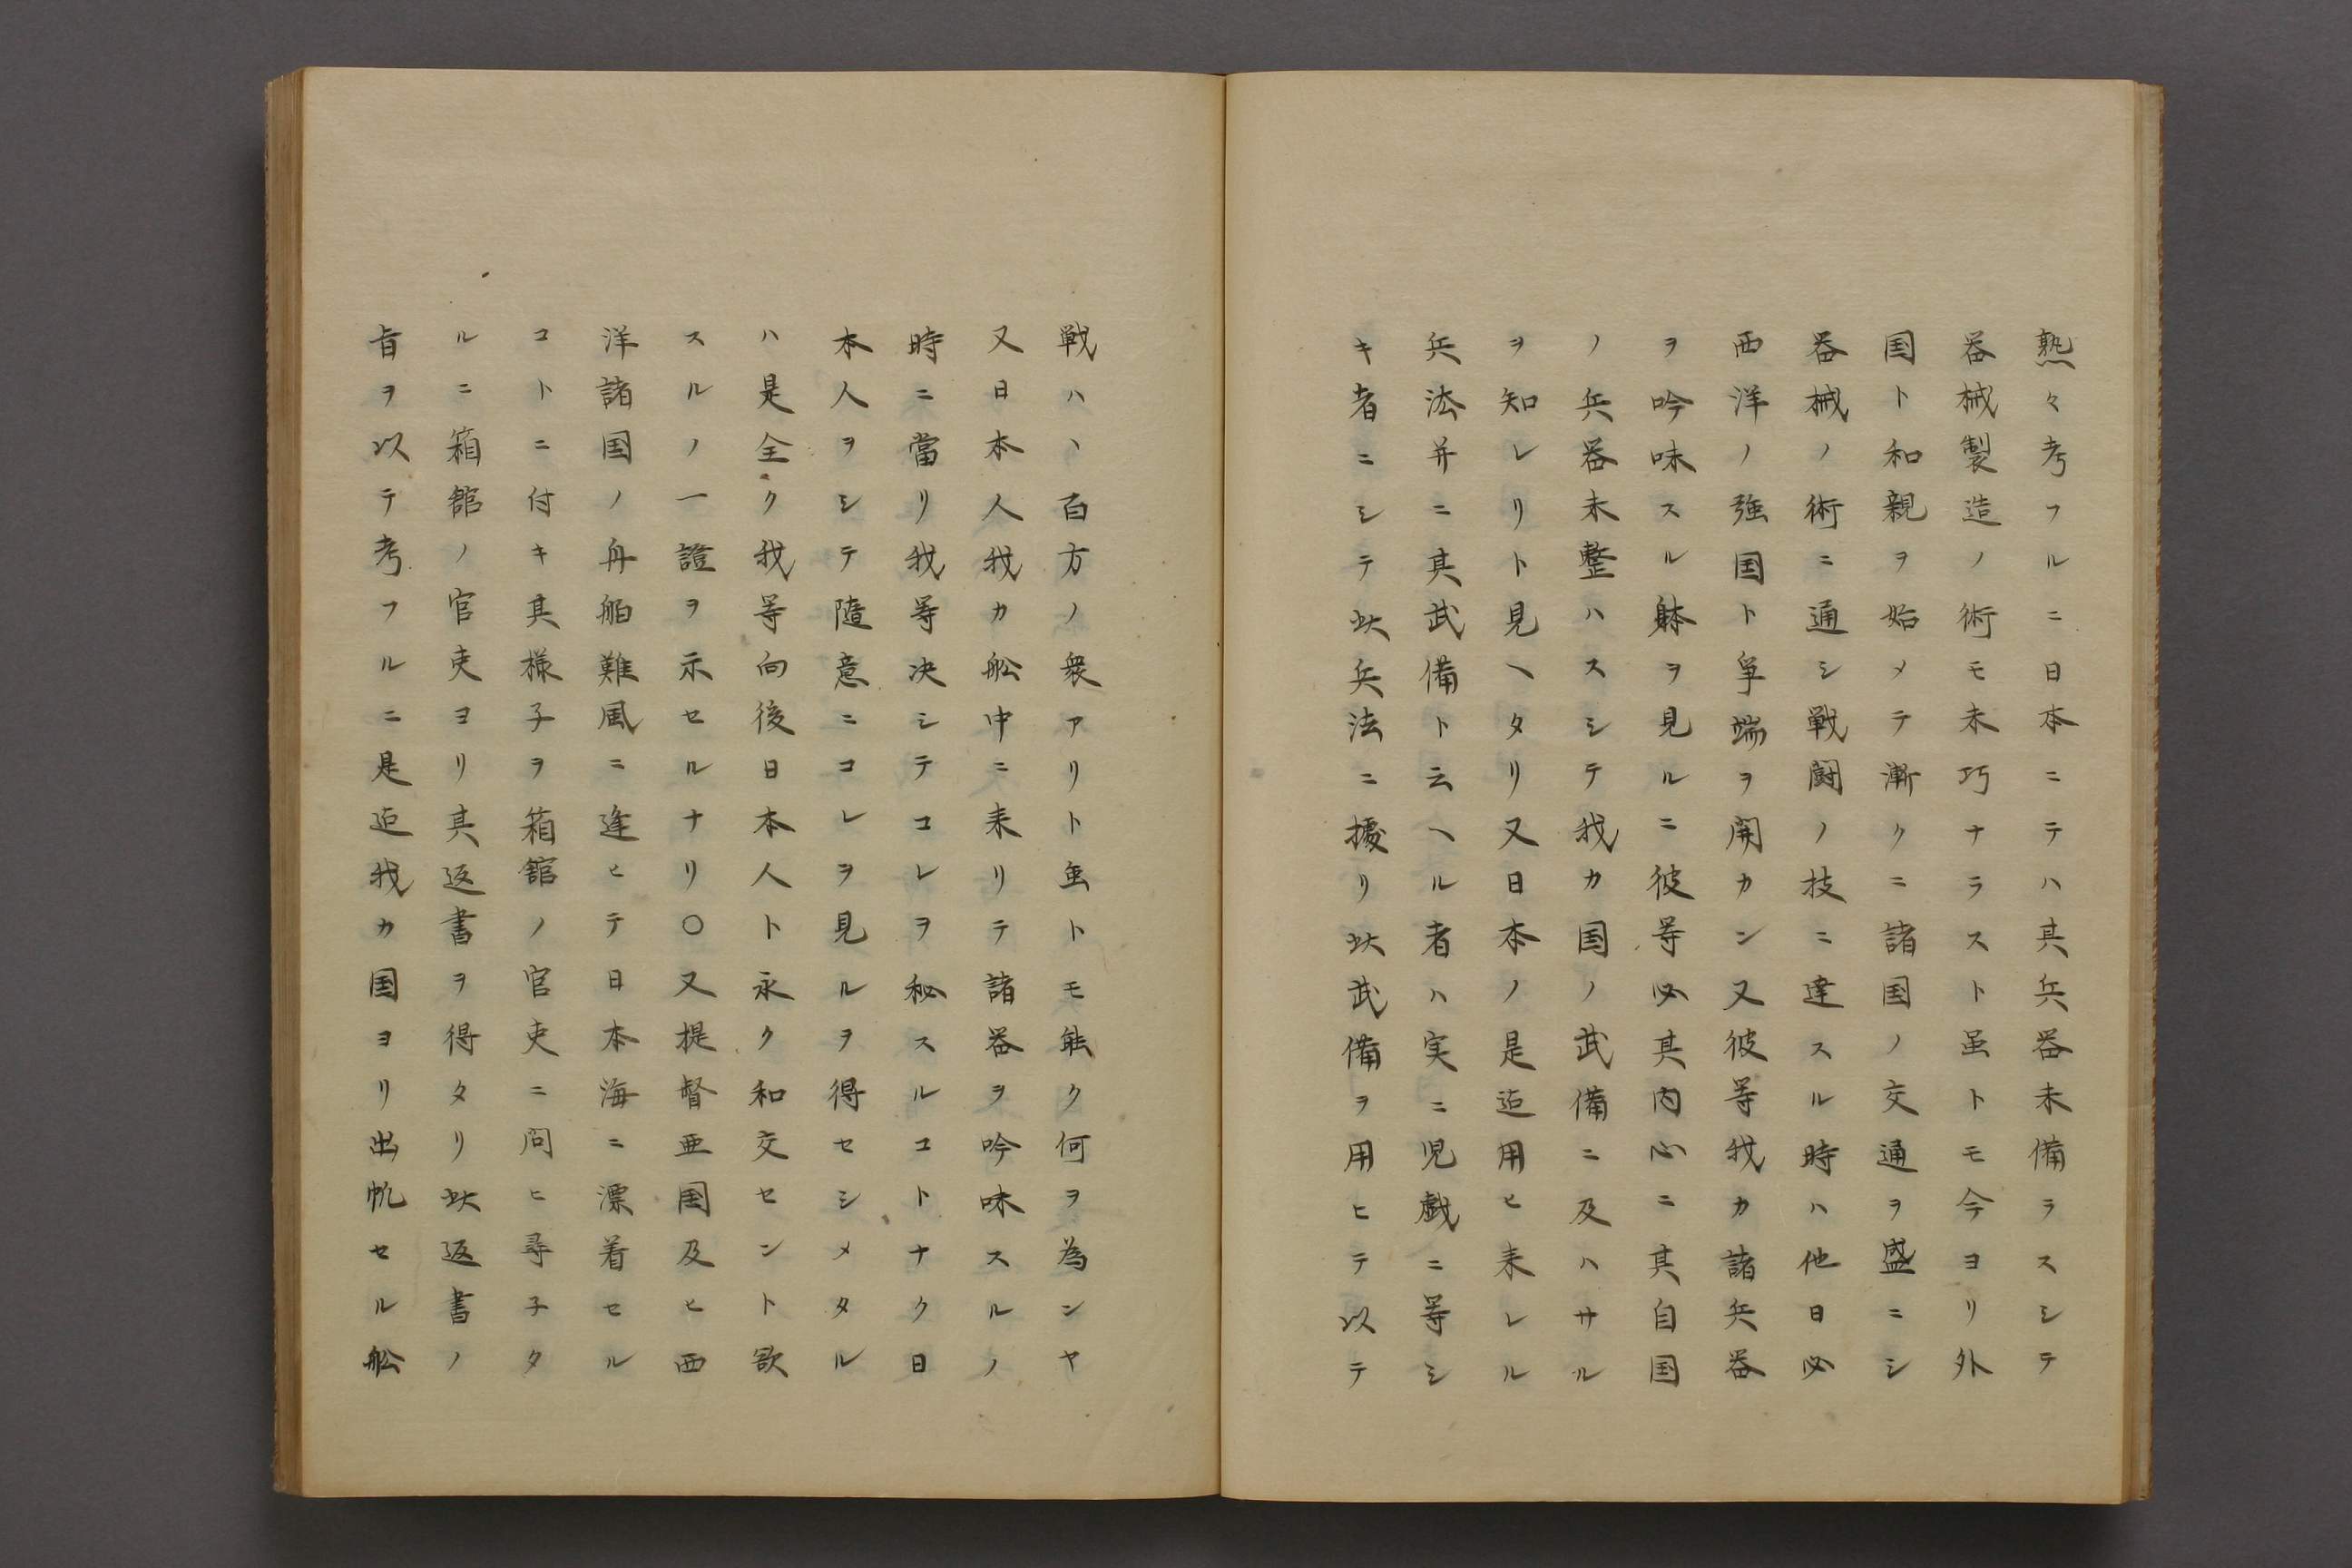 熟々考フルニ日本ニテハ其兵器未備ラスシテ
器械製造ノ術モ未巧ナラスト虽トモ今ヨリ外
国ト和親ヲ始メテ漸クニ諸国ノ交通ヲ盛ニシ
器械ノ術ニ通シ戦闘ノ技ニ達スル時ハ他日必
西洋ノ強国ト争端ヲ開カン又彼等我カ諸兵器
ヲ吟味スル躰ヲ見ルニ彼等必其内心ニ其自国
ノ兵器未整ハスシテ我カ国ノ武備ニ及ハサル
ヲ知レリト見ヘタリ又日本ノ是迠用ヒ来レル
兵法并ニ其武備ト云ヘル者ハ実ニ児戯ニ等シ
キ者ニシテ此兵法ニ據リ此武備ヲ用ヒテ以テ
戦ハヽ百方ノ衆アリト虽トモ能ク何ヲ為ンヤ
又日本人我カ舩中ニ来リテ諸器ヲ吟味スルノ
時ニ當リ我等决シテコレヲ秘スルコトナク日
本人ヲシテ随意ニコレヲ見ルヲ得セシメタル
ハ是全ク我等向後日本人ト永ク和交セント欲
スルノ一證ヲ示セルナリ〇又提督亜国及ヒ西
洋諸国ノ舟舶難風ニ逢ヒテ日本海ニ漂着セル
コトニ付キ其様子ヲ箱舘ノ官吏ニ問ヒ尋子タ
ルニ箱舘ノ官吏ヨリ其返書ヲ得タリ此返書ノ
旨ヲ以テ考フルニ是迠我カ国ヨリ出帆セル舩